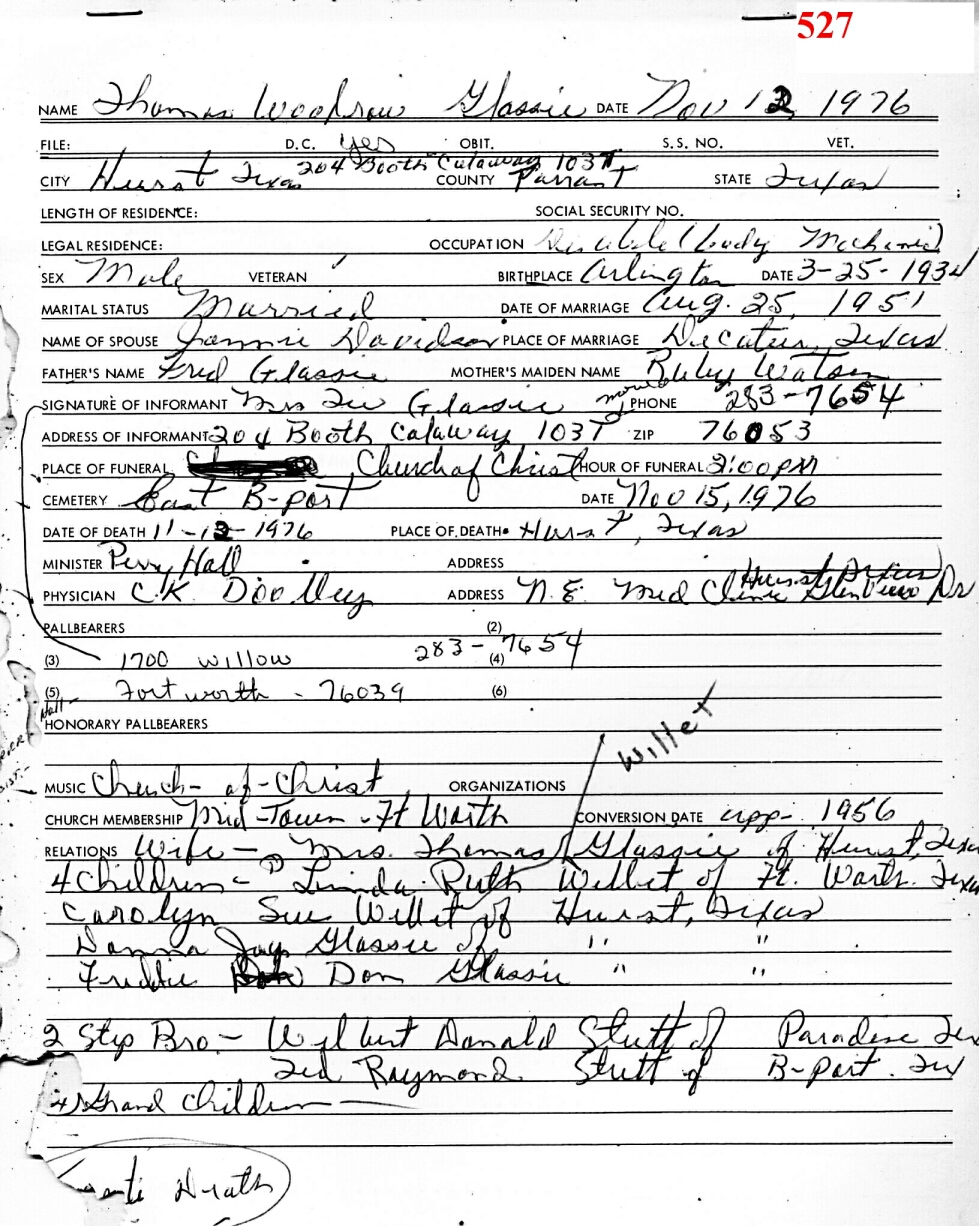 527
NAME Thomas Woodrow Glassie DATE Nov 12, 1976
FILE: D.C. yes OBIT. S.S. NO. VET.
204 Booth Calaway 103T
CITY Hurst Texas COUNTY Tarrant STATE Texas
LENGTH OF RESIDENCE: SOCIAL SECURITY NO.
LEGAL RESIDENCE: OCCUPATION (body Mechanic)
SEX Male VETERAN BIRTHPLACE Arlington DATE 3-25-1934
MARITAL STATUS Married DATE OF MARRIAGE Aug. 25, 1951
NAME OF SPOUSE Davidson PLACE OF MARRIAGE Decatur, Texas
FATHER'S NAME Fred Glassie MOTHER'S MAIDEN NAME Ruby Watson
SIGNATURE OF INFORMANT Mrs Glassie PHONE 283-7654
ADDRESS OF INFORMANT 204 Booth Calaway 103T ZIP 76053
PLACE OF FUNERAL Church of Christ HOUR OF FUNERAL 2:00 PM
CEMETERY East B-port DATE Nov 15, 1976
DATE OF DEATH 11-12-1976 PLACE OF DEATH Hurst, Texas
MINISTER Perry Hall ADDRESS Hurst, Texas
PHYSICIAN C.K. Doolley ADDRESS N.E. Med Clinic Glenview Dr
PALLBEARERS (2)
(3) 1700 willow 283-7654 (4)
(5) Fort worth - 76039 (6)
HONORARY PALLBEARERS
Willet
MUSIC Church-of-Christ ORGANIZATIONS
CHURCH MEMBERSHIP Mid-Town - Ft Worth CONVERSION DATE app- 1956
RELATIONS Wife - Mrs. Thomas Glassie of Hurst, Texas
4 Children - Linda Ruth Willet of Ft. Worth. Texas
Carolyn Sue Willet of Hurst, Texas
Donna Jay Glassie of " "
Freddie Don Glassie " "
2 Step Bro - Wilburt Donald Stutt of Paradise Tex
Ted Raymond Stutt of B-port. Tex
4 Grand Children
Death